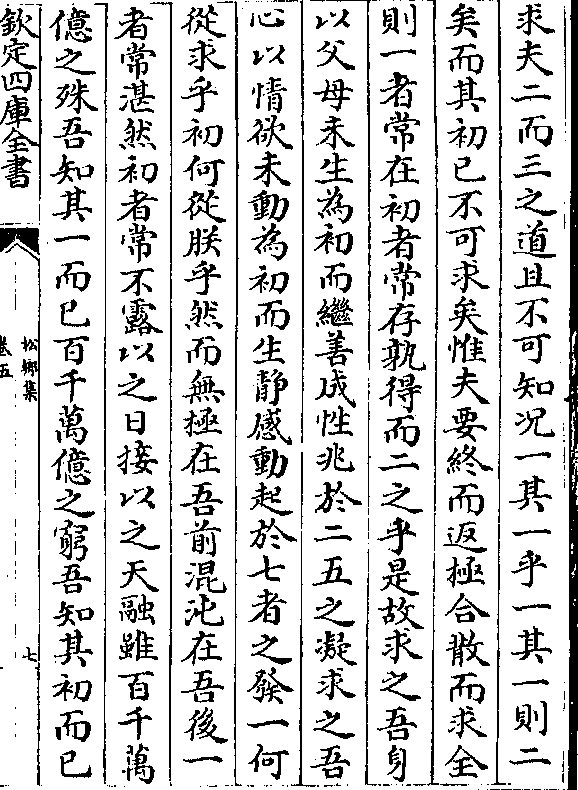 求夫二而三之道且不可知况一其一乎一其一則二
矣而其初已不可求矣惟夫要終而返極合散而求全
則一者常在初者常存孰得而二之乎是故求之吾身
以父母未生為初而繼善成性兆於二五之凝求之吾
心以情欲未動為初而生静感動起於七者之發一何
從求乎初何從朕乎然而無極在吾前混沌在吾後一
者常湛然初者常不露以之日接以之天融雖百千萬
億之殊吾知其一而已百千萬億之窮吾知其初而已
欽定四庫全書
松鄉集
卷五
七